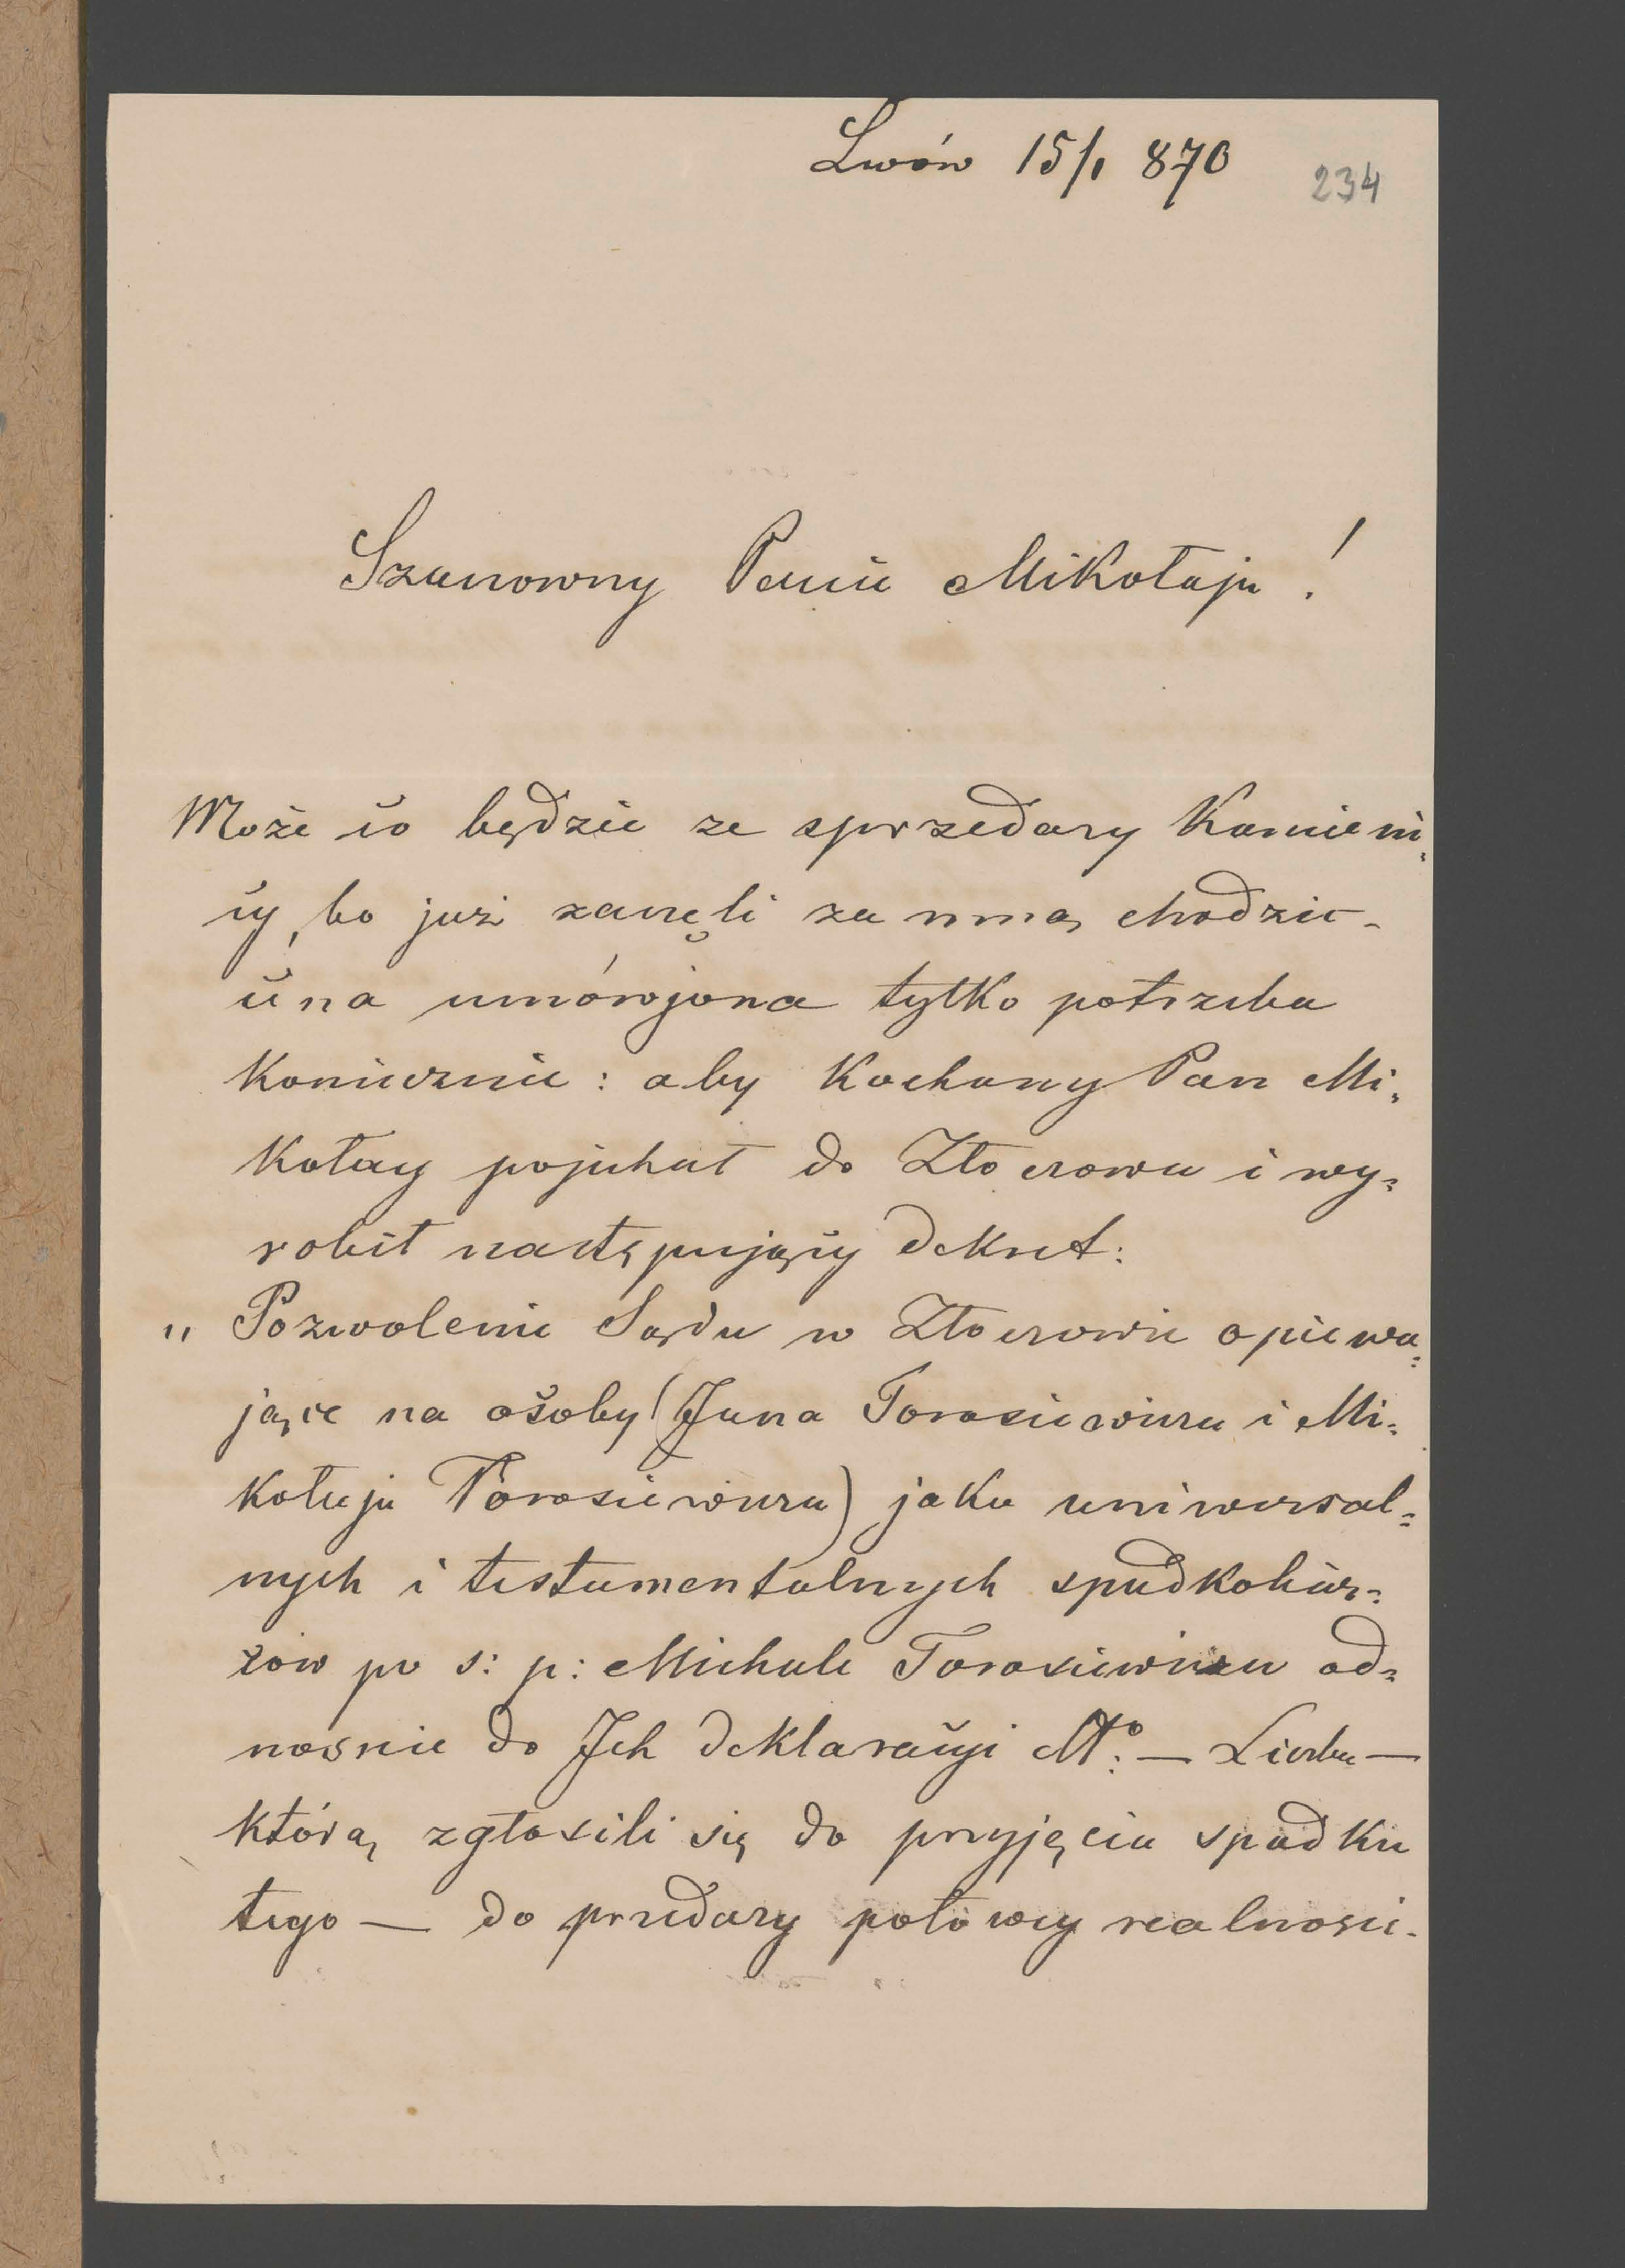 Lwów 15/1 870
234
Szanowny Panie Mikołaju!
Może co będzie ze sprzedarzy Kamieni-
cy, bo już zaczęli za nmą chodzić-
cena umówjona tylko potrzeba
Koniecznie: aby Kochany Pan Mi-
kołay pojechał do Złoczowa i wy-
robił następujący dekret:
"Pozwolenie Sądu w Złoczowie opiewa-
jące na osoby (Jana Torosiewicza i Mi-
kołaja Torosiewicza) jako uniwersal-
nych i testamentalnych spadkobier-
ców po s: p: Michale Torosiewiczu od-
nosnie do Jch deklaracyi No: — Liczba —
którą zgłosili się do przyjęcia spadku
tego — do przedarzy połowy realnosci-